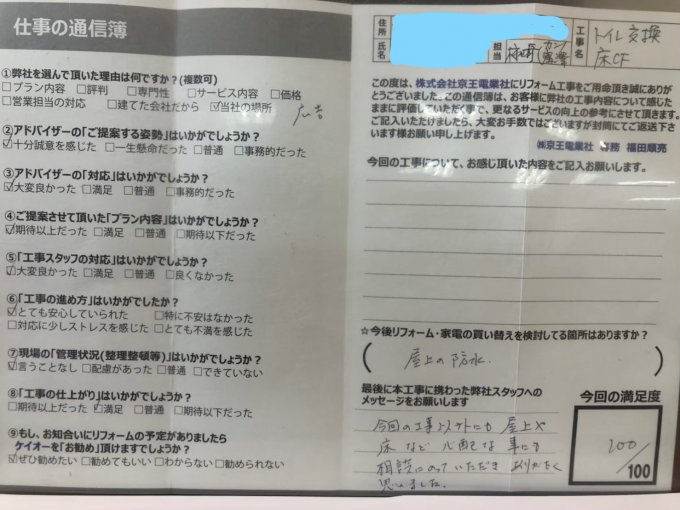 仕事の通信簿
①弊社を選んで頂いた理由は何ですか?(複数可)
□プラン内容 □評判 □専門性 □サービス内容 □価格
□営業担当の対応 □建てた会社だから ☑当社の場所
広告
②アドバイザーの「ご提案する姿勢」はいかがでしょうか?
☑十分誠意を感じた □一生懸命だった □普通 □事務的だった
③アドバイザーの「対応」はいかがでしょうか?
☑大変良かった □満足 □普通 □事務的だった
④ご提案させて頂いた「プラン内容」はいかがでしょうか?
☑期待以上だった □満足 □普通 □期待以下だった
⑤「工事スタッフの対応」はいかがでしょうか?
☑大変良かった □満足 □普通 □良くなかった
⑥「工事の進め方」はいかがでしたか?
☑とても安心していられた □特に不安はなかった
□対応に少しストレスを感じた □とても不満を感じた
⑦現場の「管理状況(整理整頓等)」はいかがでしょうか?
☑言うことなし □配慮があった □普通 □できていない
⑧「工事の仕上がり」はいかがでしょうか?
□期待以上だった ☑満足 □普通 □期待以下だった
⑨もし、お知合いにリフォームの予定がありましたら
ケイオーを「お勧め」頂けますでしょうか?
☑ぜひ勧めたい □勧めてもいい □わからない □勧められない
住所
氏名
担当
工事名
トイレ交換
床CF
この度は、株式会社京王電業社にリフォーム工事をご用命頂き誠にありが
とうございました。この通信簿は、お客様に弊社の工事内容について感じた
ままに評価していただく事で、更なるサービスの向上の参考にさせて頂きます。
ご記入いただけましたら、大変お手数ではございますが封筒にてご返送下さ
います様お願い申し上げます。
㈱京王電業社 専務 福田順亮
今回の工事について、お感じ頂いた内容をご記入お願いします。
☆今後リフォーム・家電の買い替えを検討してる箇所はありますか?
(屋上の防水.)
最後に本工事に携わった弊社スタッフへの
メッセージをお願いします
今回の工事以外にも 屋上や
床など 心配な事にも
相談にのっていただき ありがたく
思いました.
今回の満足度
100/100